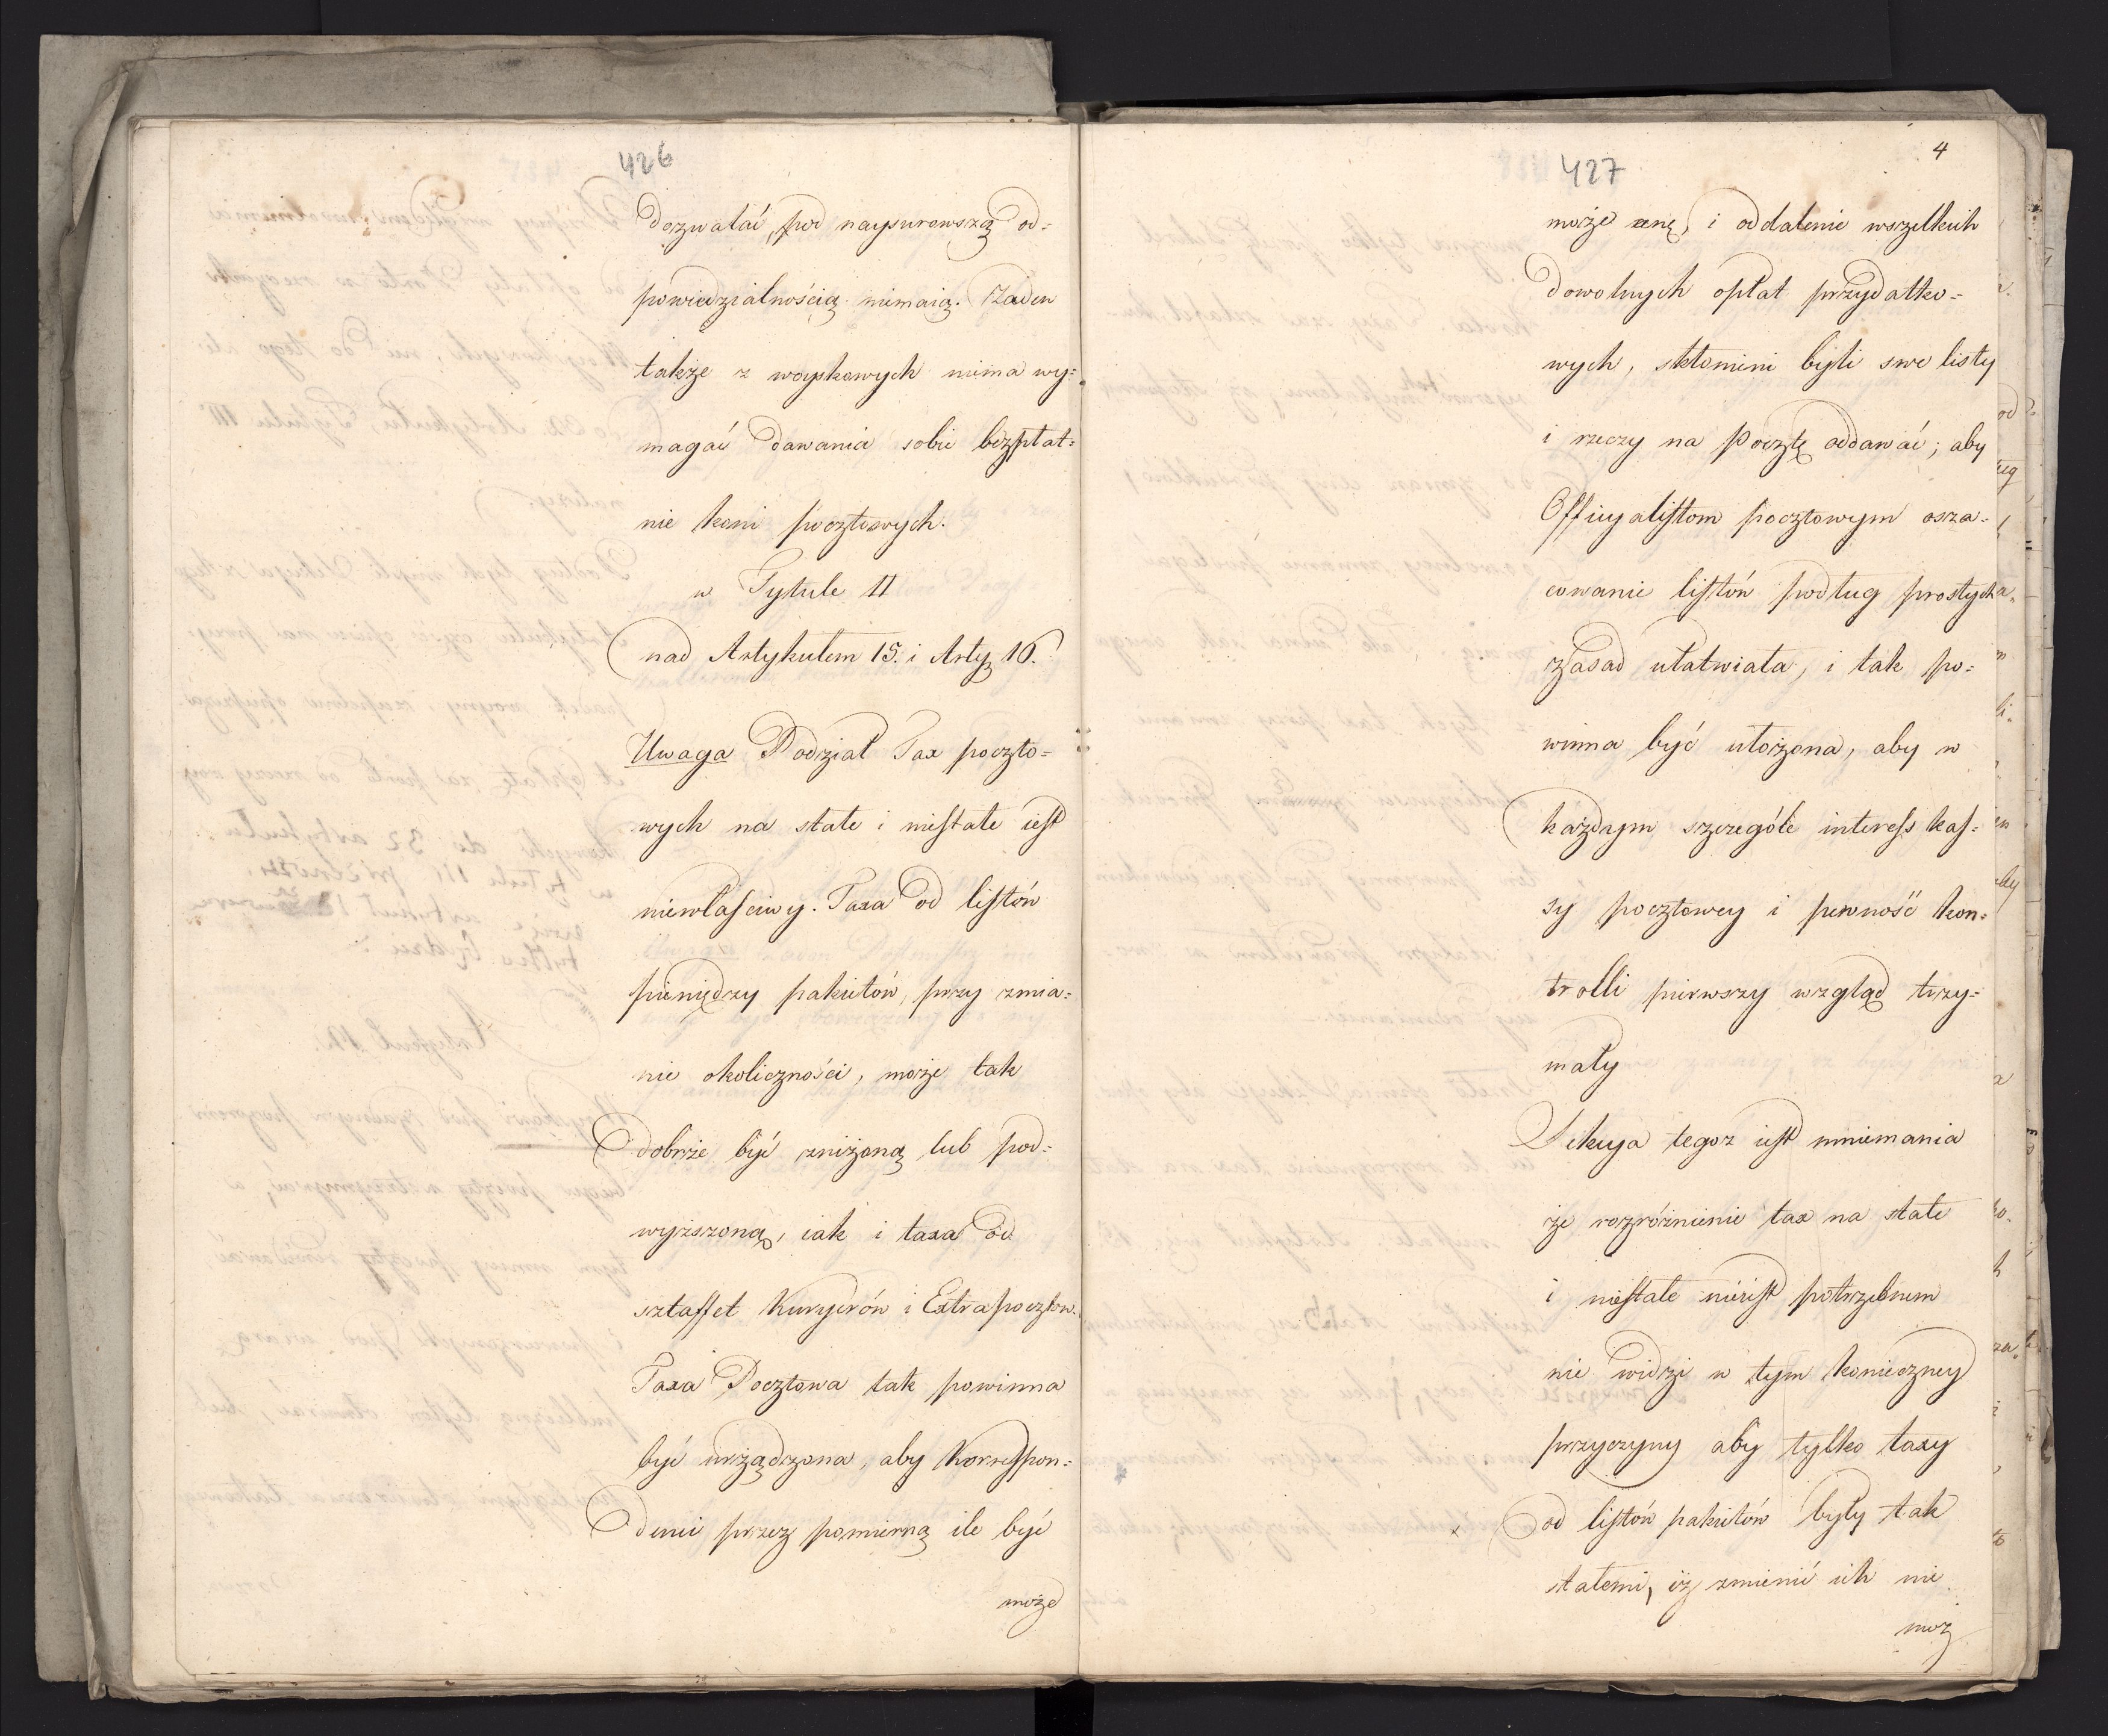 426
dozwalać, pod naysurowszą od=
powiedzialnością niemaią. Żaden
także z woyskowych niema wy=
magać dawania sobie bezpłat=
nie koni pocztowych.
w Tytule II
nad Artykułem 15. i Arty 16.
Uwaga Podział Tax poczto=
wych na stałe i niestałe iest
niewłaściwy. Taxa od listów
pieniędzy pakietów, przy zmia=
nie okoliczności, może tak
dobrze być zniżoną lub pod=
wyższoną, iak i taxa od
sztaffet Kuryerów i Extrapocztow.
Taxa Pocztowa tak powinna
być urządzona, aby Korrespon=
denci przez pomierną ile być
może
4
427
może cenę, i oddalenie wszelkich
dowolnych opłat przydatko=
wych, skłonieni byli swe listy
i rzeczy na Pocztę oddawać; aby
Officyalistom pocztowym osza=
cowanie listów podług prostych
zasad ułatwiała, i tak po=
winna być ułożona, aby w
każdym szczególe interess kas=
sy pocztowey i pewność kon=
trolli pierwszy wzgląd trzy=
mały
Sekcya tegoz iest mniemania
że rozróżnienie tax na stałe
i niestałe nieiest potrzebnem
nie widzi w tym konieczney
przyczyny aby tylko taxy
od listów pakietów były tak
stałemi, iż zmienić ich nie
moż